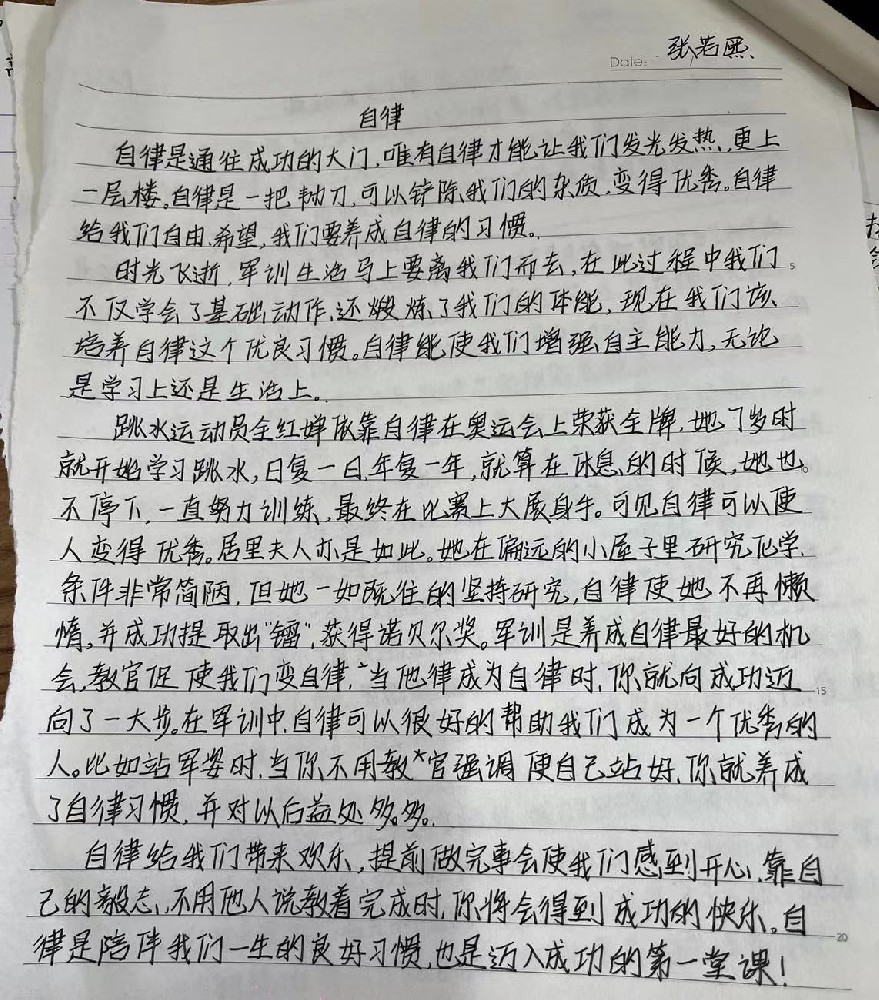 Date: 张若熙
自律
自律是通往成功的大门,唯有自律才能让我们发光发热,更上
一层楼。自律是一把刀,可以铲除我们的杂质,变得优秀。自律
给我们自由、希望,我们要养成自律的习惯。
时光飞逝,军训生活马上要离我们而去,在此过程中我们
不仅学会了基础动作,还煅炼了我们的体能,现在我们该
培养自律这个优良习惯。自律能使我们增强自主能力,无论
是学习上还是生活上。
跳水运动员全红婵依靠自律在奥运会上荣获金牌,她7岁时
就开始学习跳水,日复一日,年复一年,就算在休息的时候,她也
不停下,一直努力训练,最终在比赛上大展身手。可见自律可以使
人变得优秀。居里夫人亦是如此。她在偏远的小屋子里研究化学,
条件非常简陋,但她一如既往的坚持研究,自律使她不再懒
惰,并成功提取出“镭”,获得诺贝尔奖。军训是养成自律最好的机
会,教官促使我们变自律,当他律成为自律时,你就向成功迈
15
向了一大步。在军训中,自律可以很好的帮助我们成为一个优秀的
人。比如站军姿时,当你不用教官强调便自己站好,你就养成
了自律习惯,并对以后益处多多。
自律给我们带来欢乐,提前做完事会使我们感到开心,靠自
己的毅志,不用他人说教着完成时,你将会得到成功的快乐。自
20
律是陪伴我们一生的良好习惯,也是迈入成功的第一堂课!